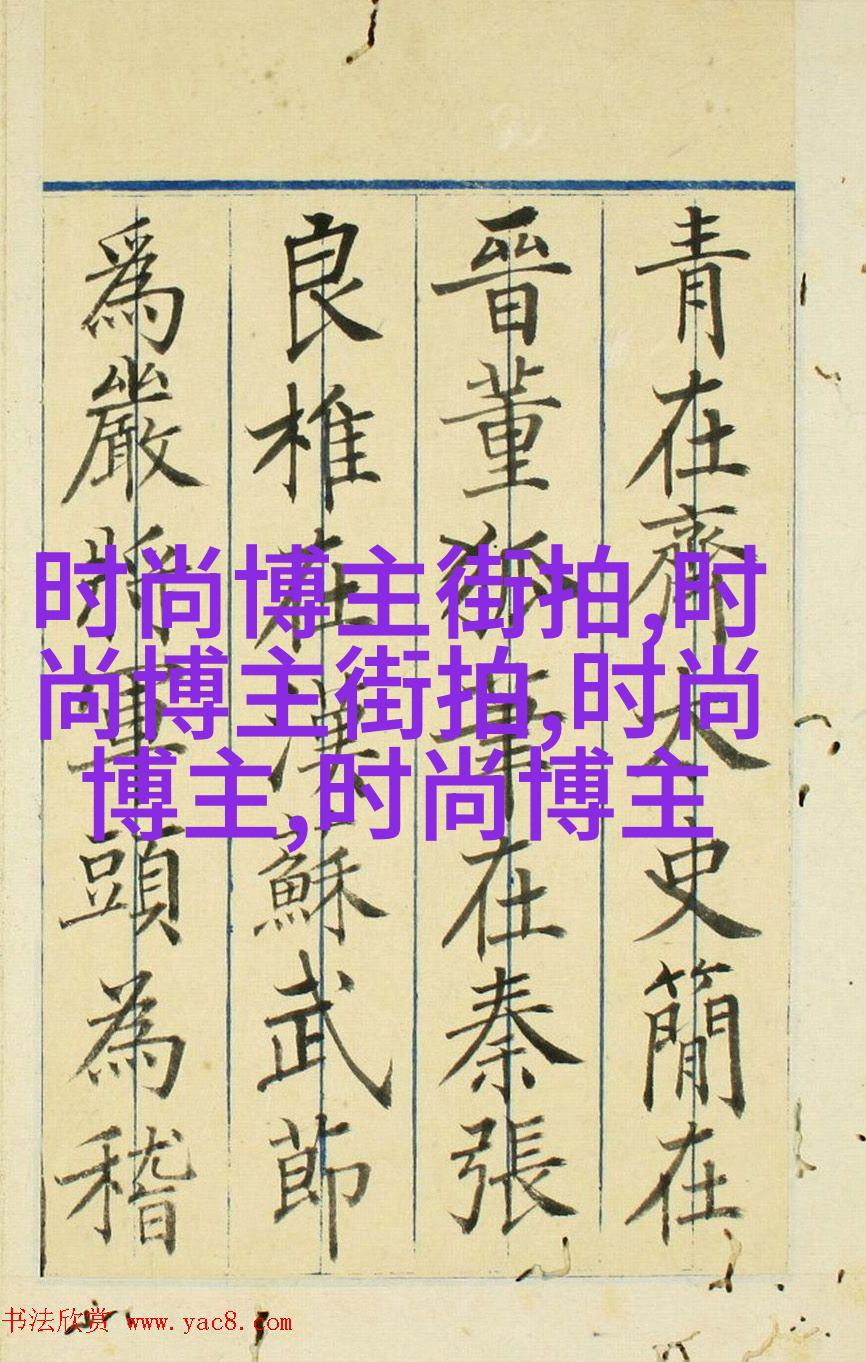 青在齊太史簡在
晉董狐筆在秦張
良椎在漢蘇武節
爲嚴將軍頭為稽
时尚博主街拍,时
尚博主街拍,时尚
博主,时尚博主
书法欣赏 www.yac8.com